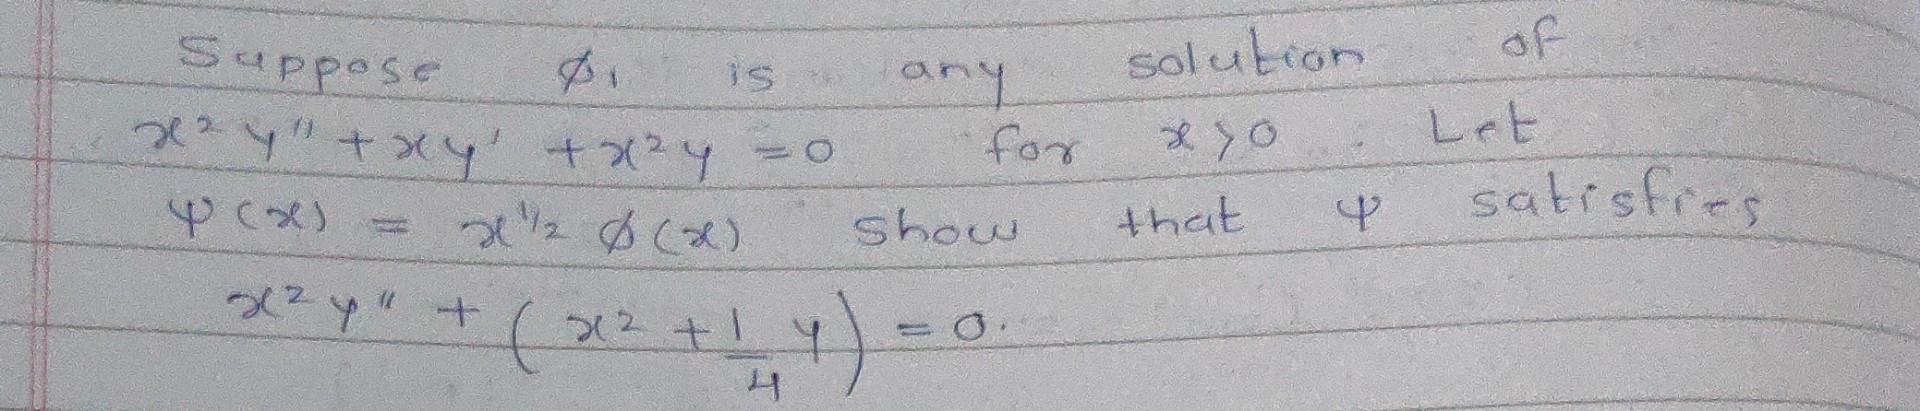 Suppose ϕ₁ is any solution of
x² y'' + xy' + x² y = 0 for x > 0. Let
ψ(x) = x^1/2 ϕ(x) show that ψ satisfies
x² y'' + (x² + 1/4 y) = 0.